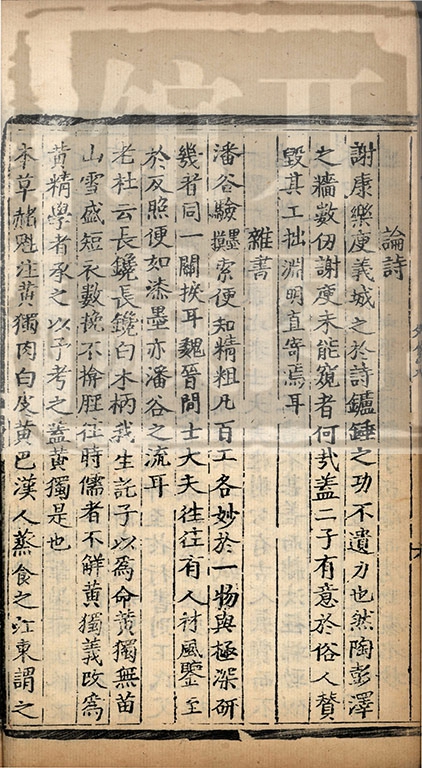 論詩
謝康樂庾義城之於詩鑪錘之功不遺力也然陶彭澤
之牆數仞謝庾未能窺者何哉盖二子有意於俗人贊
毀其工拙淵明直寄焉耳
雜書
潘谷驗墨索便知精粗凡百工各妙於一物與極深研
幾者同一關捩耳魏晉間士大夫往往有人材風鑒至
於反照便如漆墨亦潘谷之流耳
老杜云長鑱長鑱白木柄我生託子以為命黃獨無苗
山雪盛短衣數挽不掩脛往時儒者不觧黃獨義改為
黃精學者承之以予考之盖黃獨是也
本草赭魁注黃獨肉白皮黃巴漢人蒸食之江東謂之